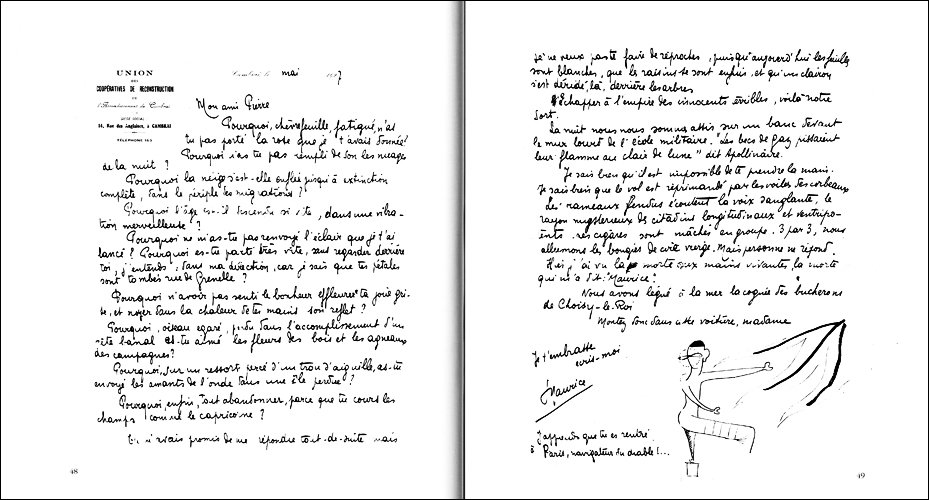 UNION
DES
COOPÉRATIVES DE RECONSTRUCTION
DE
l'Arrondissement de Cambrai
SIÈGE SOCIAL
14, Rue des Anglaises, à CAMBRAI
TÉLÉPHONE
Cambrai, le mai 7
Mon ami Pierre
Pourquoi, chèvrefeuille, fatigué, n'as
tu pas porté la rose que je t'avais donnée
Pourquoi n'as tu pas rempli de son les nuages
de la nuit ?
Pourquoi la neige s'est-elle enflée jusqu'à extinction
complète, dans le périple des migrations ?
Pourquoi l'âge est-il descendu si vite, dans une vibra-
tion merveilleuse ?
Pourquoi ne m'as-tu pas renvoyé l'éclair que je t'ai
lancé ? Pourquoi es-tu parti très vite, sans regarder derrière
toi, j'entends, dans ma direction, car je sais que tes pétales
sont tombés rue de Grenelle ?
Pourquoi n'avoir pas senti le bonheur effleurer ta joie gri-
se, et noyer dans la chaleur de tes mains son reflet ?
Pourquoi, oiseau égaré, perdu dans l'accomplissement d'un
rite banal as-tu aimé les fleurs des bois et les agneaux
des campagnes ?
Pourquoi, sur un ressort percé d'un trou d'aiguille, as-tu
envoyé les amants de l'onde dans une île perdue ?
Pourquoi, enfin, tout abandonner, parce que tu cours les
champs comme le capricorne ?
Tu m'avais promis de me répondre tout-de-suite mais
48
je ne veux pas te faire de reproches, puisqu'aujourd'hui les feuilles
sont blanches, que les raisins se sont enfuis, et qu'un clairon
s'est déridé, là, derrière les arbres
S'échapper à l'empire des innocents érribles, voilà notre
sort.
La nuit nous nous sommes assis sur un banc devant
le mur lourd de l'école militaire. "Les becs de gaz pissaient
leur flamme au clair de lune" dit Apollinaire.
Je sais bien qu'il est impossible de te prendre la main.
Je sais bien que le vol est réprimandé par les voiles des corbeaux
Les rameaux fendus écoutent la voix sanglante, le
rayon mystérieux des citadins longitudinaux et ventripo-
tents. Les cigares sont mâchés en groupe. 3 par 3, nous
allumons les bougies de cire vierge. Mais personne ne répond.
Hier j'ai vu la morte aux mains vivantes, la morte
qui m'a dit : Maurice !
Nous avons légué à la mer la cognée des bucherons
de Choisy-le-Roi
Montez donc dans cette voiture, madame
Je t'embrasse
écris-moi
Maurice
J'apprends que tu es rentré
à Paris, navigateur du diable !...
49